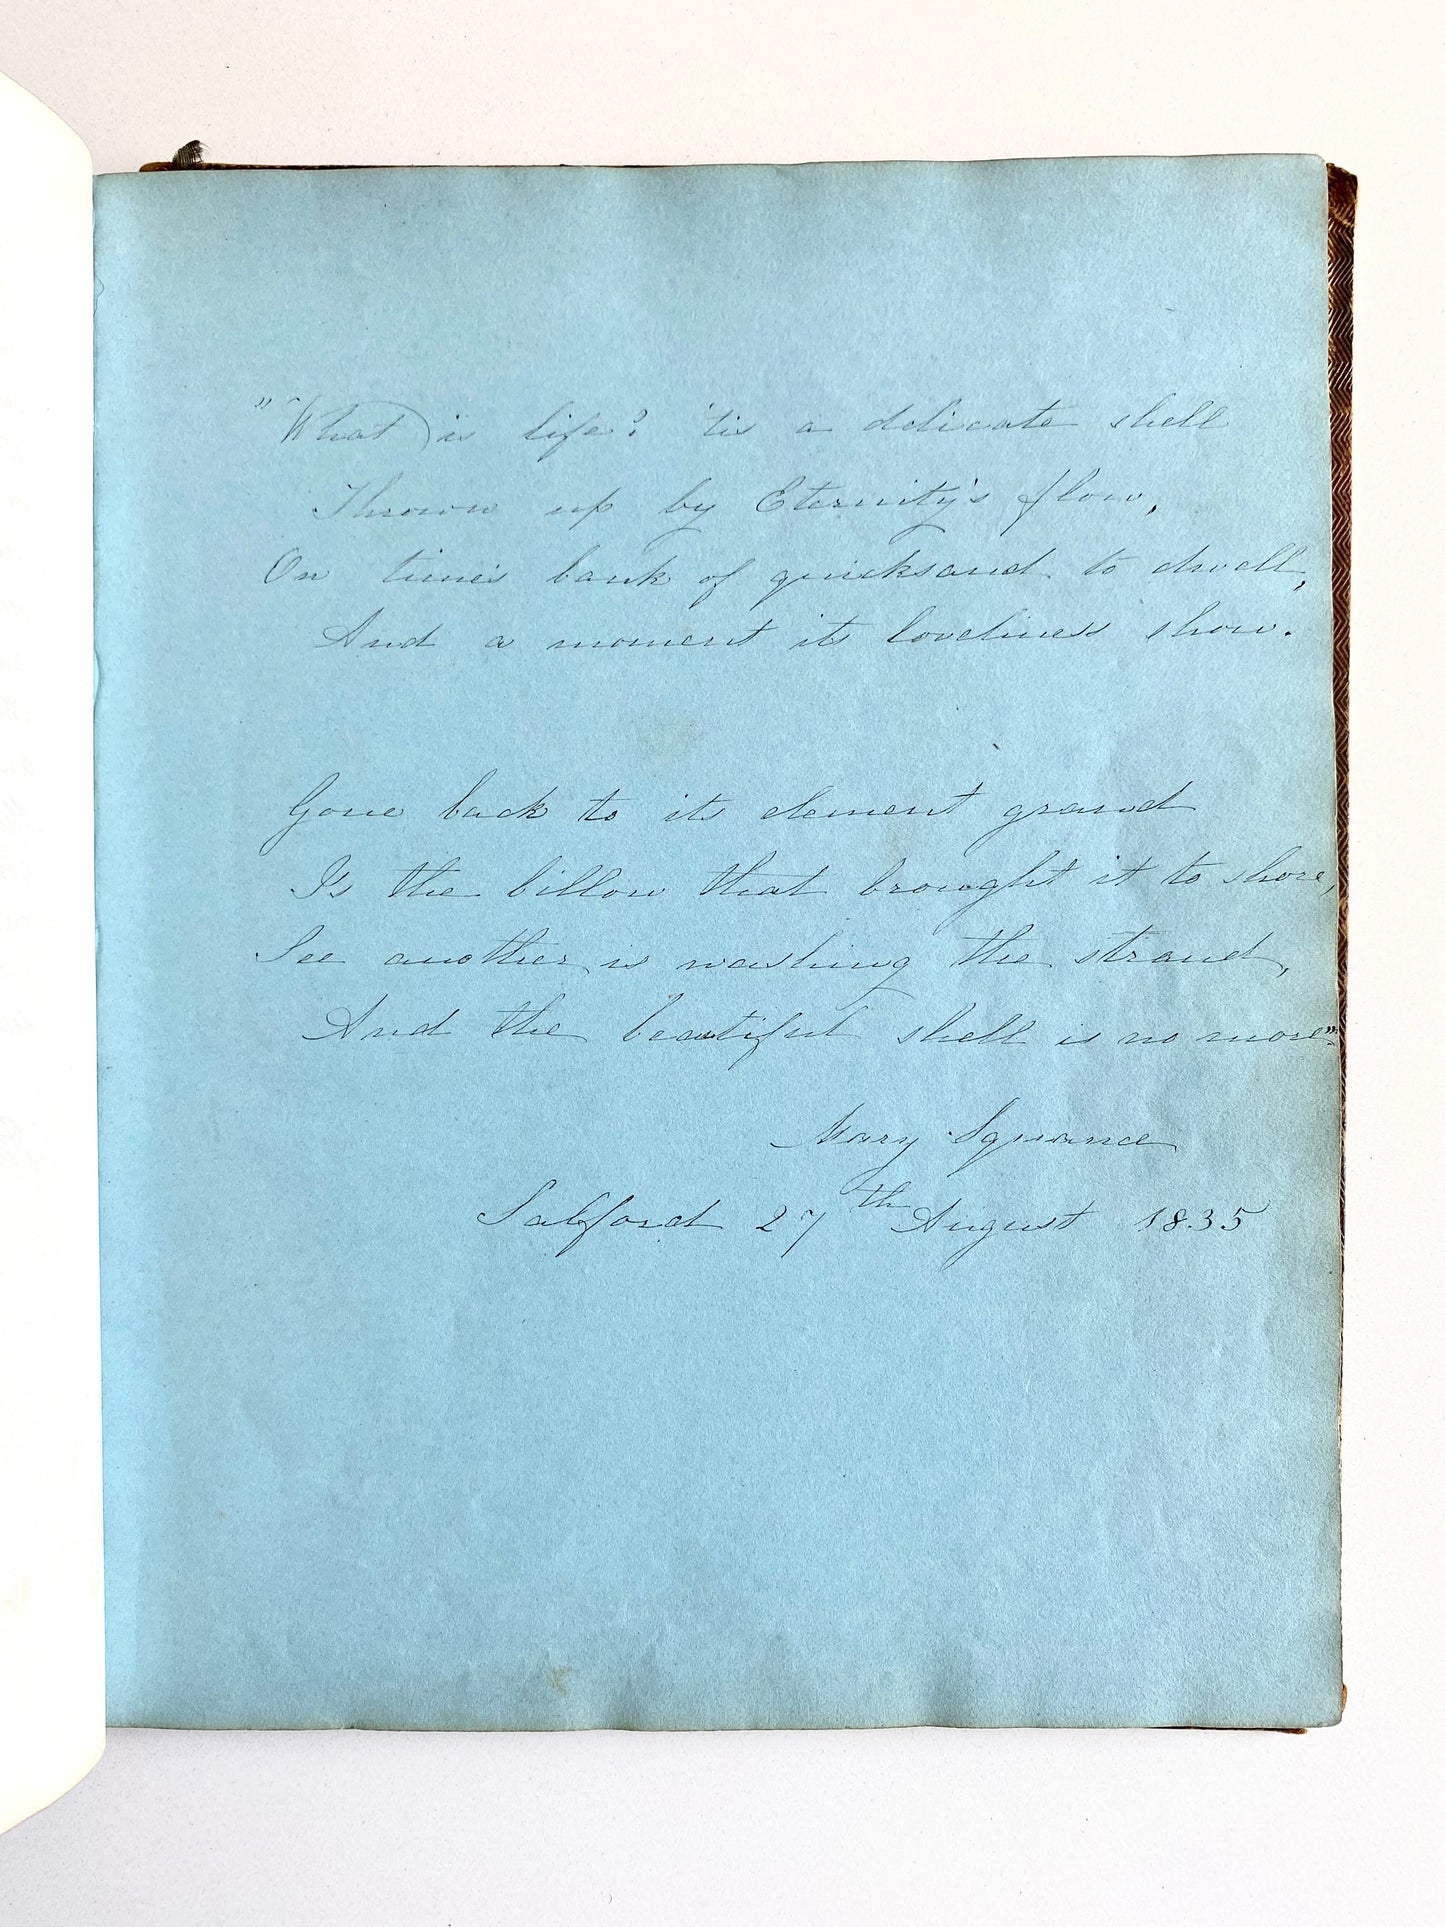 "What is life? 'tis a delicate shell
Thrown up by Eternity's flow,
On time's bank of quicksand to dwell,
And a moment its loveliness show.
Gone back to its element grand
Is the billow that brought it to shore,
See another is washing the strand,
And the beautiful shell is no more".
Mary Squance
Salford 27th August 1835